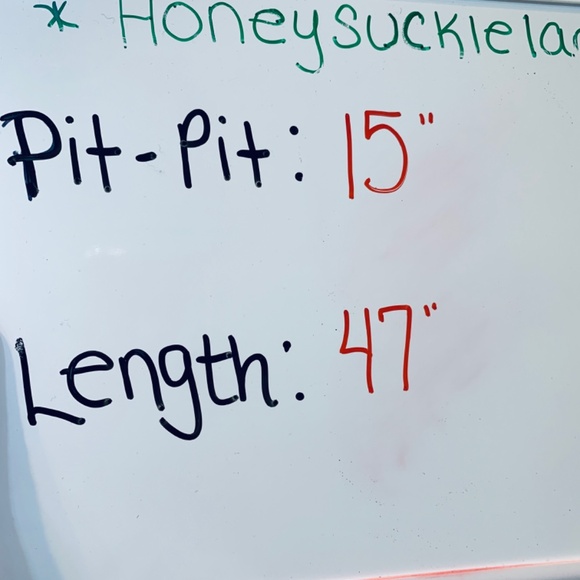 * Honeysucklela
Pit-Pit: 15"
Length: 47"